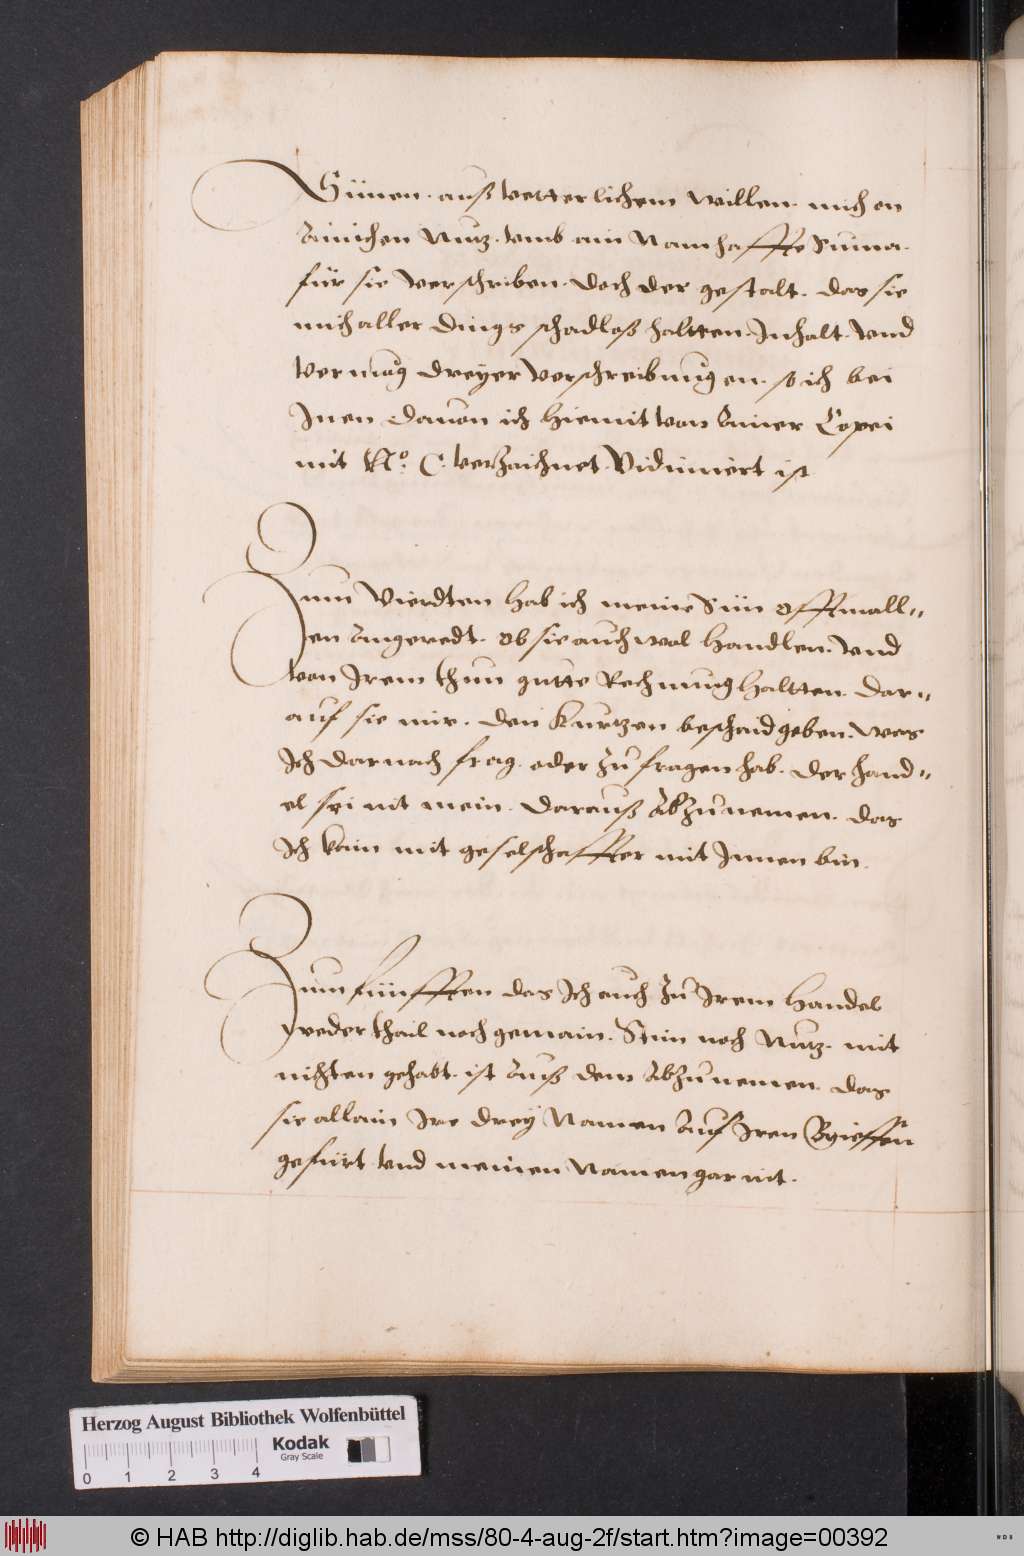 Sünen. auß vetterlichem willen. mich on
Ainichen Nutz. vmb ain Namhaffte Suma.
für sie verschriben. doch der gestalt. das sie
mich aller dings schadloß haltten. Inhalt. vnd
vermüg dreyer verschreibungen. so ich bei
Inen. dauon ich hiemit von Ainer Copei
mit No. C. verzaichnet. Vidimiert ist
Zum Vierdten hab ich meine Sün offtmall=
en Angeredt. ob sie auch wol handlen. vnd
von Irem thun gutte Rechnung haltten. dar=
auf sie mir. den kurtzen beschaid geben. was
Ich darnach frag. oder zu fragen hab. der hand=
el sei nit mein. darauß Abzunemen. das
Ich kain mit geselschaffter mit Innen bin.
Zum fünfften das Ich auch zu Irem handel
weder thail noch gemain. Stim noch Nutz. mit
nichten gehabt. ist Auß dem Abzunemen. das
sie allain Ire drey Namen Auf Iren
gefürt vnd meinen Namen gar nit.
Herzog August Bibliothek Wolfenbüttel
Kodak
Gray Scale
0 1 2 3 4
© HAB http://diglib.hab.de/mss/80-4-aug-2f/start.htm?image=00392